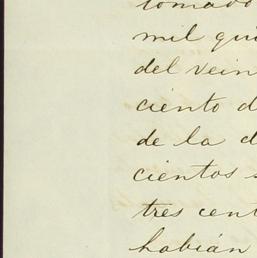 tomado
mil qui
del vein
ciento d
de la d
cientos s
tres cent
habián